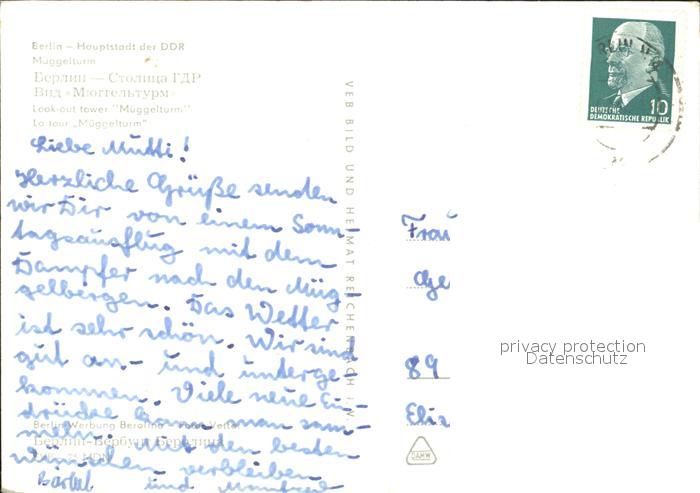 Berlin – Hauptstadt der DDR
Müggelturm
Берлин — Столица ГДР
Вид «Мюггельтурм»
Look-out tower "Müggelturm"
La tour „Müggelturm"
Liebe Mutti!
Herzliche Grüße senden
wir Dir von einem Sonn-
tagsausflug mit dem
Dampfer nach den Müg-
gelbergen. Das Wetter
ist sehr schön. Wir sind
gut an- und unterge-
kommen. Viele neue Ein-
drücke kann man sam-
meln. Mit den besten
Wünschen verbleiben
Bärbel und Manfred
Berlin-Werbung Berolina
Берлин-Вербунг Беролина
VEB BILD UND HEIMAT REICHENBACH I. V.
DEUTSCHE
DEMOKRATISCHE REPUBLIK
10
Frau
Ge
89
Elis
privacy protection
Datenschutz